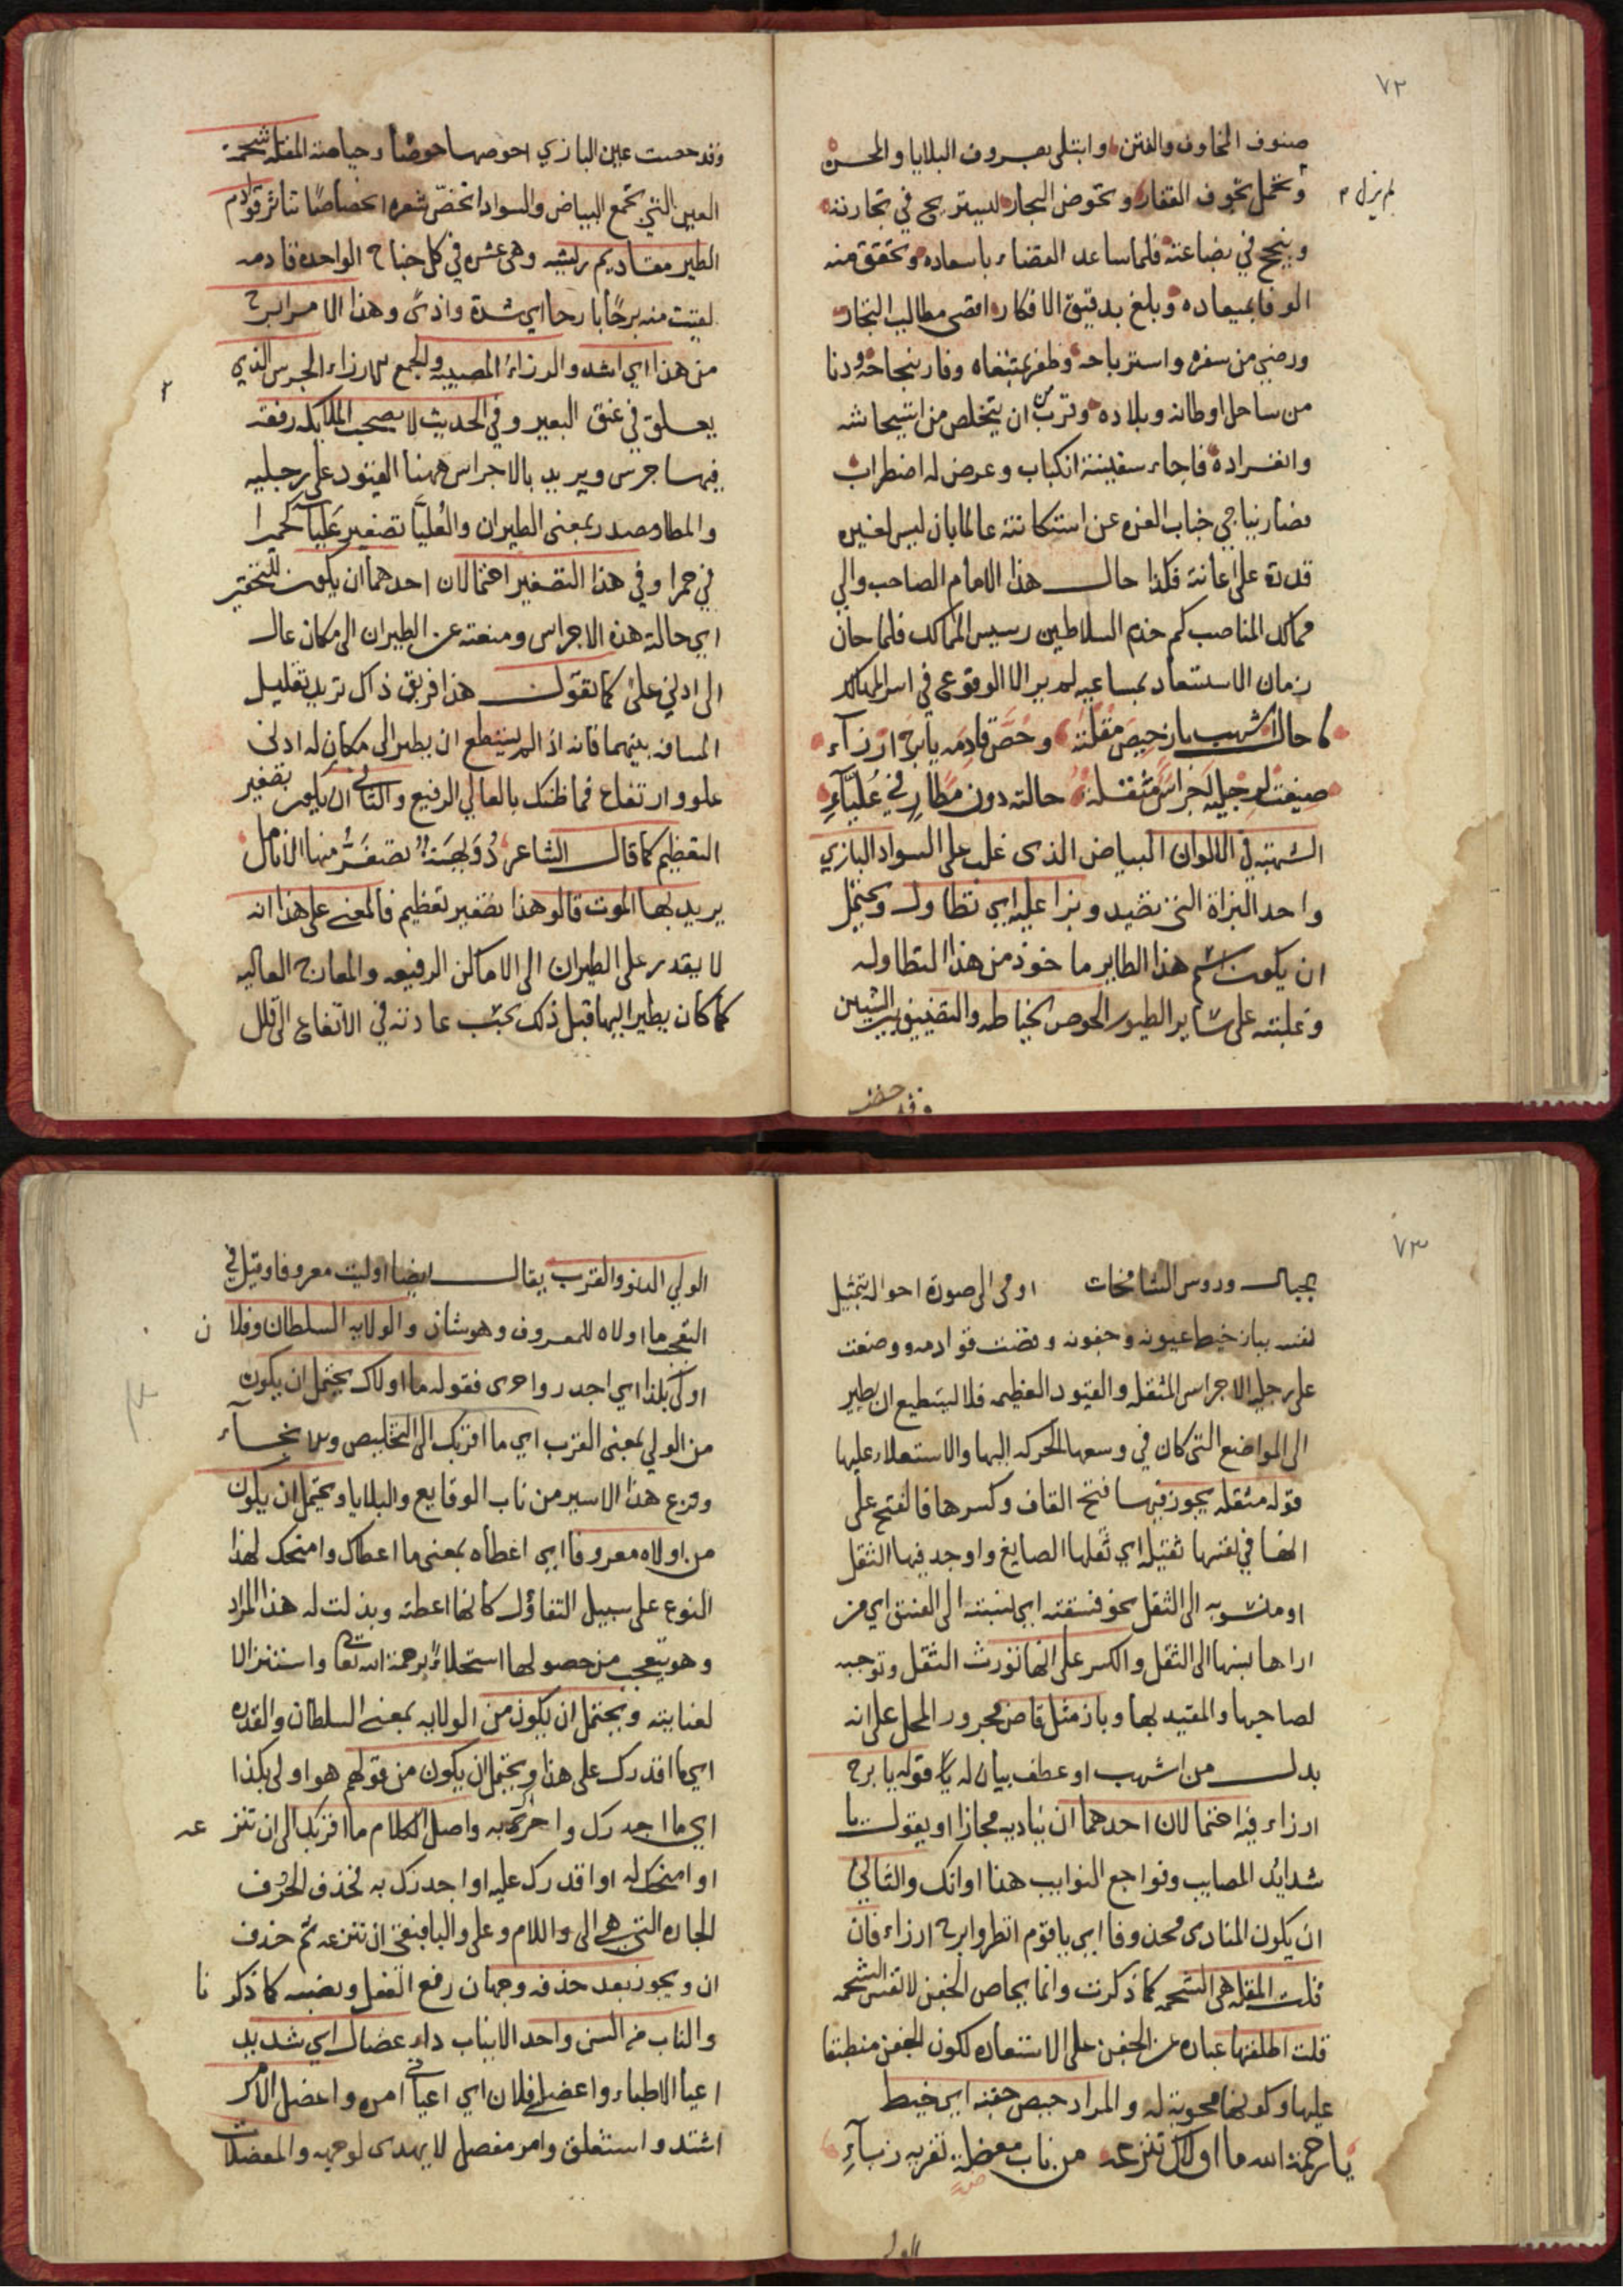 ٧٢
صنوف المخاوف والفتن وابتلى بصروف البلايا والمحن
لم يزل م
وتحمل تخوف القفار وتخوض البحار ليستريح في تجارته
وينجح في بضاعته فلما ساعد القضاء باسعاده وتحقق منه
الوفا بميعاده وبلغ بدقيق الافكار اقصى مطالب التجار
ورضي من سفره واسترباحه وظفر بمبتغاه وفاز بنجاحه ودنا
من ساحل اوطانه وبلاده وقرب من ان يتخلص من استيحاشه
وانفراده فاجاء سفينته انكباب وعرض له اضطراب
فصار يناجي جناب العزه عن استكانته عالما بان ليس لغيره
قدرة على اعانته فكذا حال هذا الامام الصاحب والي
ممالك المناصب كم خدم السلاطين رسيس الممالك فلما حان
زمان الاستسعاد بمساعيه لم ير الا الوقوع في اسر المهالك
كاحال اشهب باز حيص مقلته وحص قادمه يا برح ارزاء
صيغت لرجليه اجراس مثقلة حالته دون مطار في عُليّاءِ
الشهبة في الالوان البياض الذى غلب على السواد البازي
واحد البزاة التي تصيد وبزا عليه اي تطاول ويحتمل
ان يكون اسم هذا الطاير ماخوذ من هذا التطاوله
وغلبته على ساير الطيور الحوص الخياطه والتضييق بين الشيين
وقد حصت
وقد حصت عين البازي احوصها حوصا وحياصة المقلة شحمة
العين التي تجمع البياض والسواد انحصّ شعره انحصاصًا تناثر قوادم
الطير مقاديم ريشه وهى عشره في كل جناح الواحده قادمه
لقيت منه برحًا بارحا اي شدة واذىً وهذا الامر ابرح
من هذا اي اشد والرزاء المصيبه والجمع الارزاء الجرس الذي
يعلق في عنق البعير وفي الحديث لا يصحب الملايكه رفقة
فيها جرس ويريد بالاجراس ههنا القيود على رجليه
والمطار مصدر بمعنى الطيران والعُليّا تصغير علياء كحميرا
في حمرا وفي هذا التصغير احتمالان احدهما ان يكون للتحقير
اي حالة هذه الاجراس ومنعته عن الطيران الى مكان عال
الى ادني على كما تقول هذا فريق ذاك تريد تقليل
المسافه بينهما فانه اذا لم يستطع ان يطير الى مكان له ادنى
علو وارتفاع فما ظنك بالعالي الرفيع والثاني ان يكون تصغير
التعظيم كما قال الشاعر دُوَيهيَة تصفَرّ منها الانامل
يريد بها الموت قالو هذا تصغير تعظيم فالمعنى على هذا انه
لا يقدر على الطيران الى الاماكن الرفيعه والمعارج العاليه
كما كان يطير اليها قبل ذلك بحسب عادته في الارتفاع الى قلل
٧٣
الجبال وروس الشامخات اومى الى صورة احواله بتمثيل
نفسه بباز خيط عيونه وجفونه وقصت قوادمه ووضعت
على رجليه الاجراس المثقله والقيود العظيمه فلا يستطيع ان يطير
الى المواضع التى كان في وسعها الحركه اليها والاستعلاء عليها
قوله مثقله يجوز فيها فتح القاف وكسرها فالفتح على
انها في نفسها ثقيله اي ثقلها الصايغ واوجد فيها الثقل
او منسوبه الى الثقل نحو فسقته اي نسبته الى الفسق اي من
اراها نسبها الى الثقل والكسر على انها تورث الثقل وتوجبه
لصاحبها والمقيد بها وباز مثل قاض مجرور المحل على انه
بدل من اشهب او عطف بيان له قوله يا برح
ارزاء فيه احتمالان احدهما ان يناديه مجازا او يقول يا
شدايد المصايب وفواجع النوايب هذا اوانك والثاني
ان يكون المنادى محذوفا اي يا قوم انظروا برح ارزاء فان
قلت المقله هى الشحمه كما ذكرت وانما يحاص الجفن لا نفس الشحمه
قلت اطلقها عباره عن الجفن على الاستعاره لكون الجفن منطبقا
عليها وكونها محويّة له والمراد حيص جفنه اي خيط
يا رحمة الله ما اولاك تنزعه من ناب معضلة تفريه زباءِ
الولي
الولي الدنو والقرب يقال ايضا اوليت معروفا وقيل في
التعجب ما اولاه للمعروف وهو شاذ والولايه السلطان وفلان
اولى بكذا اي اجدر واحرى فقوله ما اولاك يحتمل ان يكون
من الولي بمعنى القرب اي ما اقربك الى التخليص والانجاء
ونزع هذا الاسير من ناب الوقايع والبلايا ويحتمل ان يكون
من اولاه معروفا اي اعطاه بمعنى ما اعطاك وامنحك لهذا
النوع على سبيل التفاؤل كانها اعطته وبذلت له هذا المراد
وهو يتعجب من حصولها استحلاءً برحمة الله تعالى واستنزالا
لعنايته ويحتمل ان يكون من الولايه بمعنى السلطان والقدره
اي ما اقدرك على هذا ويحتمل ان يكون من قولهم هو اولى بكذا
اي ما اجدرك واحراك به واصل الكلام ما اقربك الى ان تنزعه
او امنحك له او اقدرك عليه او اجدرك به فحذف الحرف
الجاره التي هي الى واللام وعلى والبا فبقى ان تنزعه ثم حذف
ان ويجوز بعد حذفه وجهان رفع الفعل ونصبه كما ذكرنا
والناب من السن واحد الانياب داء عضال اي شديد
اعيا الاطباء واعضلني فلان اي اعياني امره واعضل الامر
اشتد واستغلق وامر معضل لا يهتدى لوجهه والمعضلات